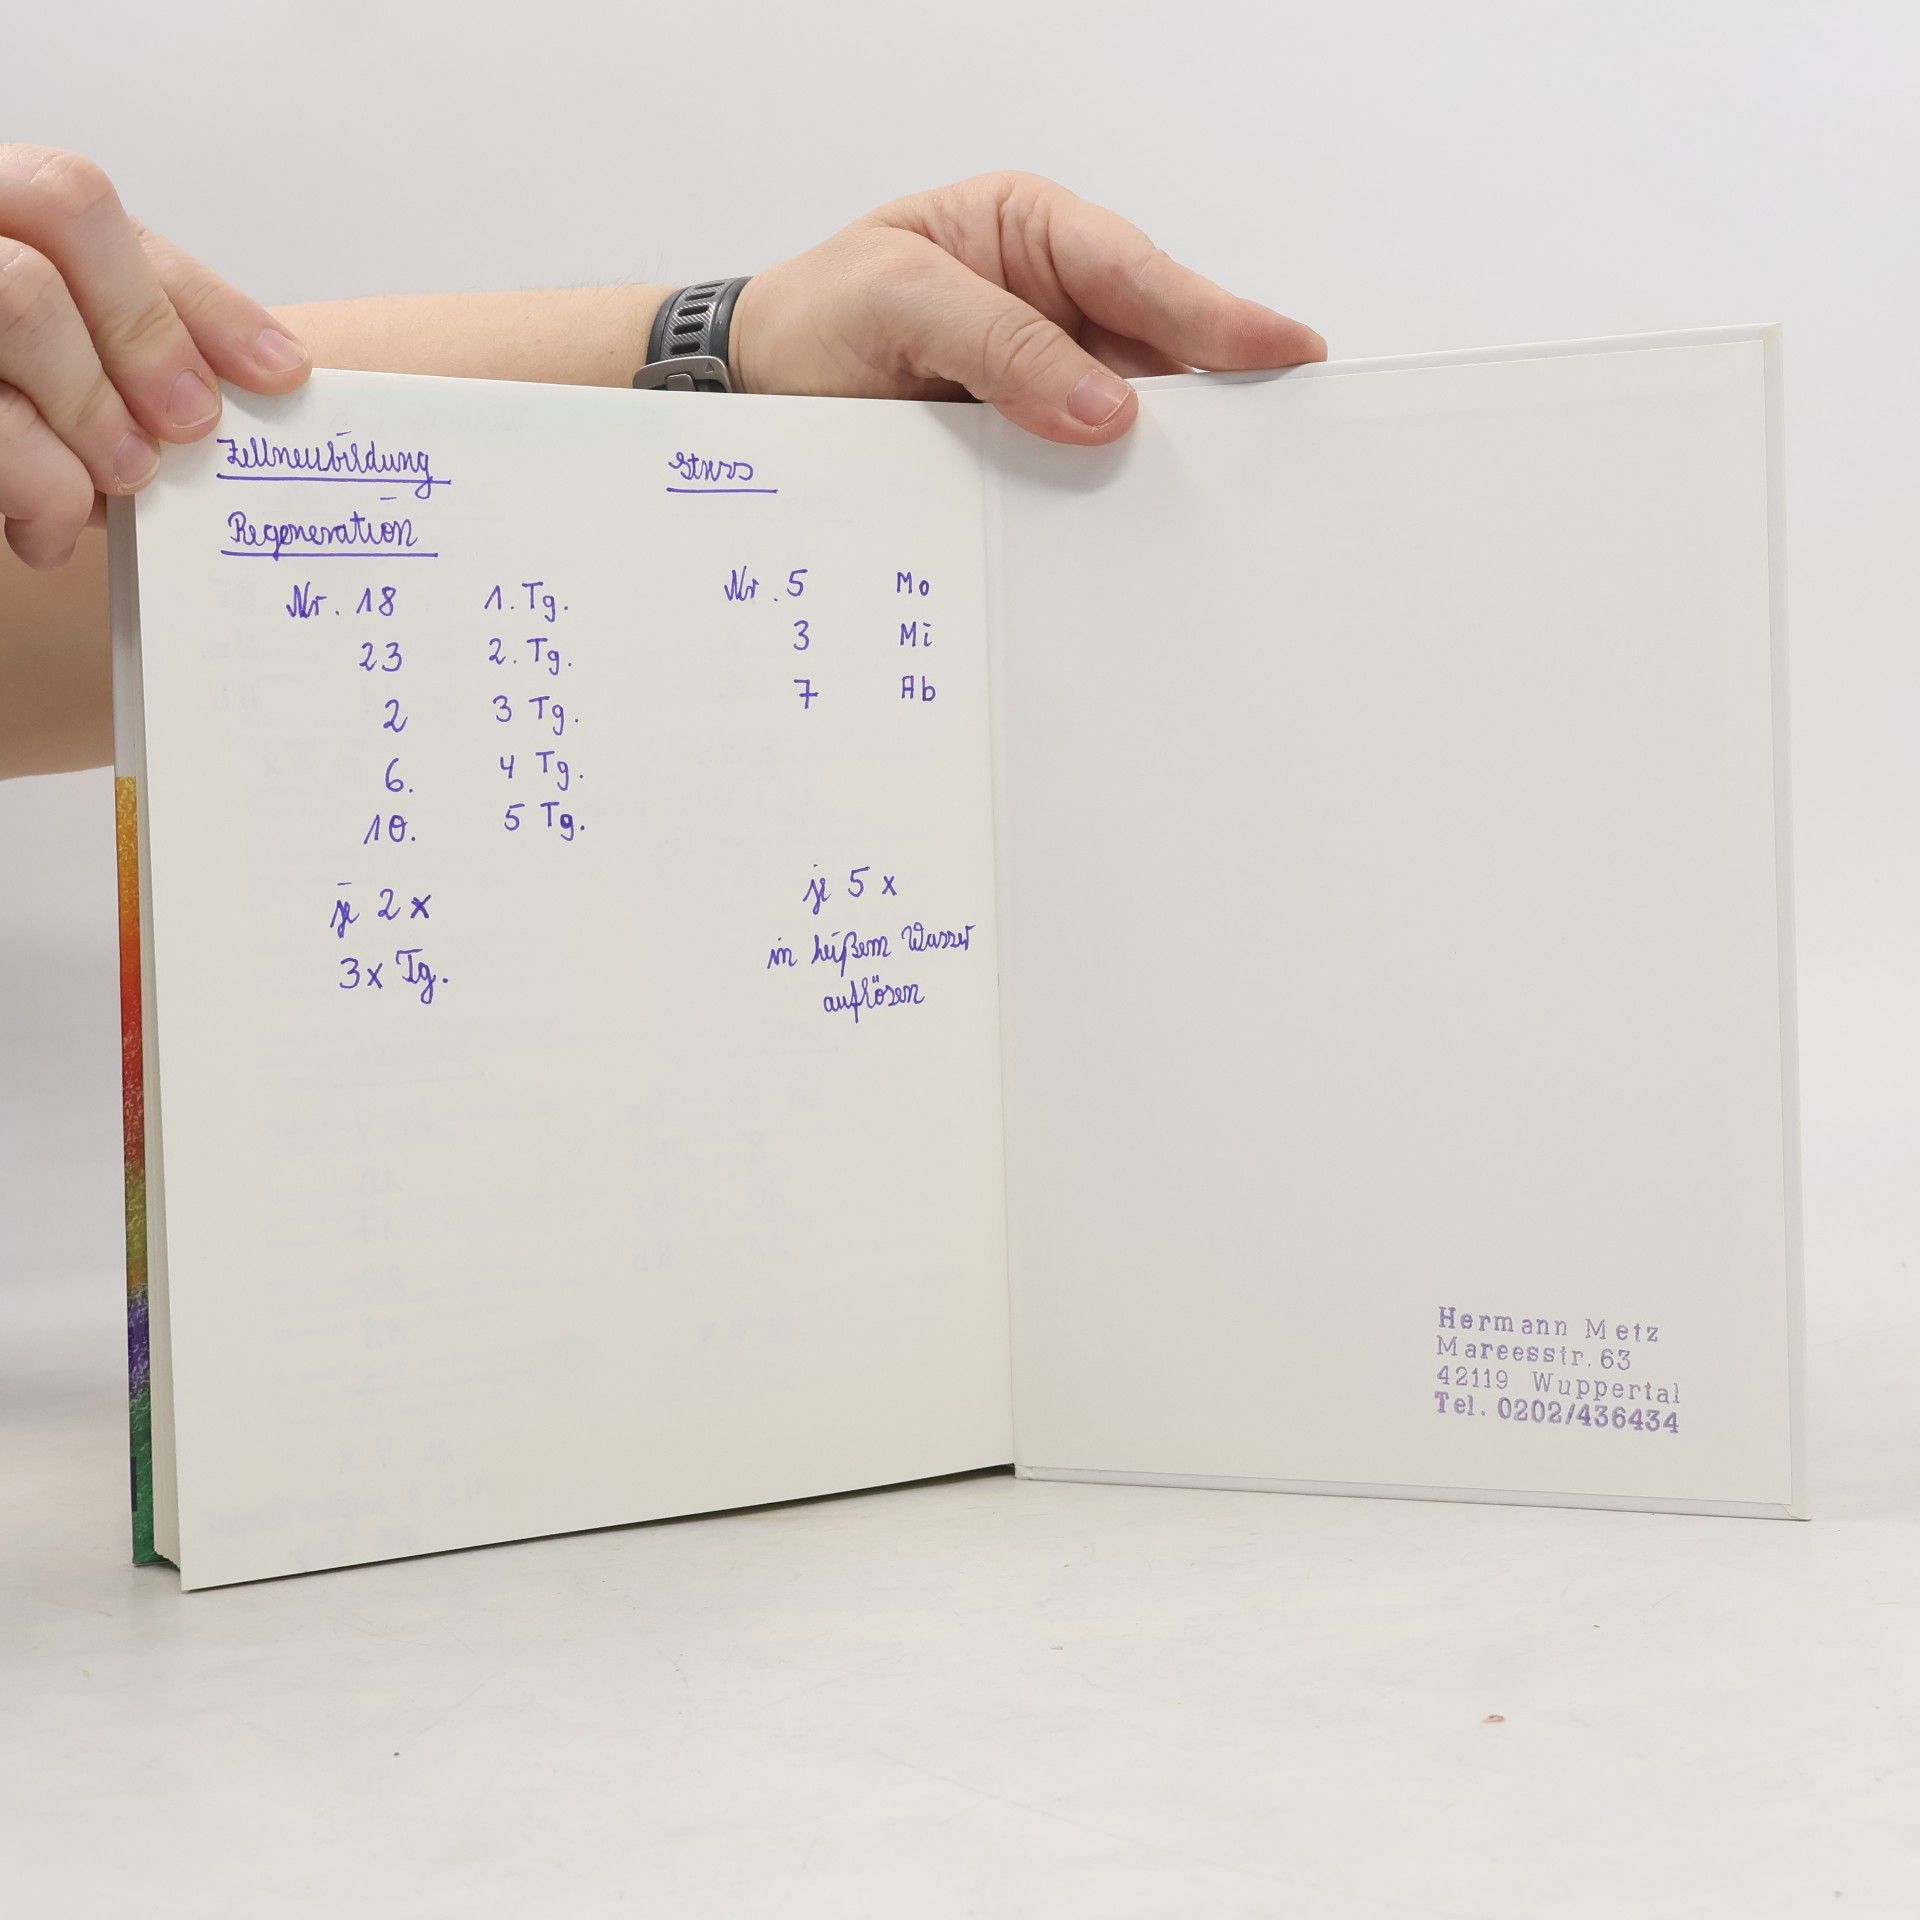 Zellneubildung
Regeneration
Nr. 18 1. Tg.
23 2. Tg.
2 3 Tg.
6. 4 Tg.
10. 5 Tg.
je 2 x
3x Tg.
Stress
Nr. 5 Mo
3 Mi
7 Ab
je 5 x
in heißem Wasser
auflösen
Hermann Metz
Mareesstr. 63
42119 Wuppertal
Tel. 0202/436434